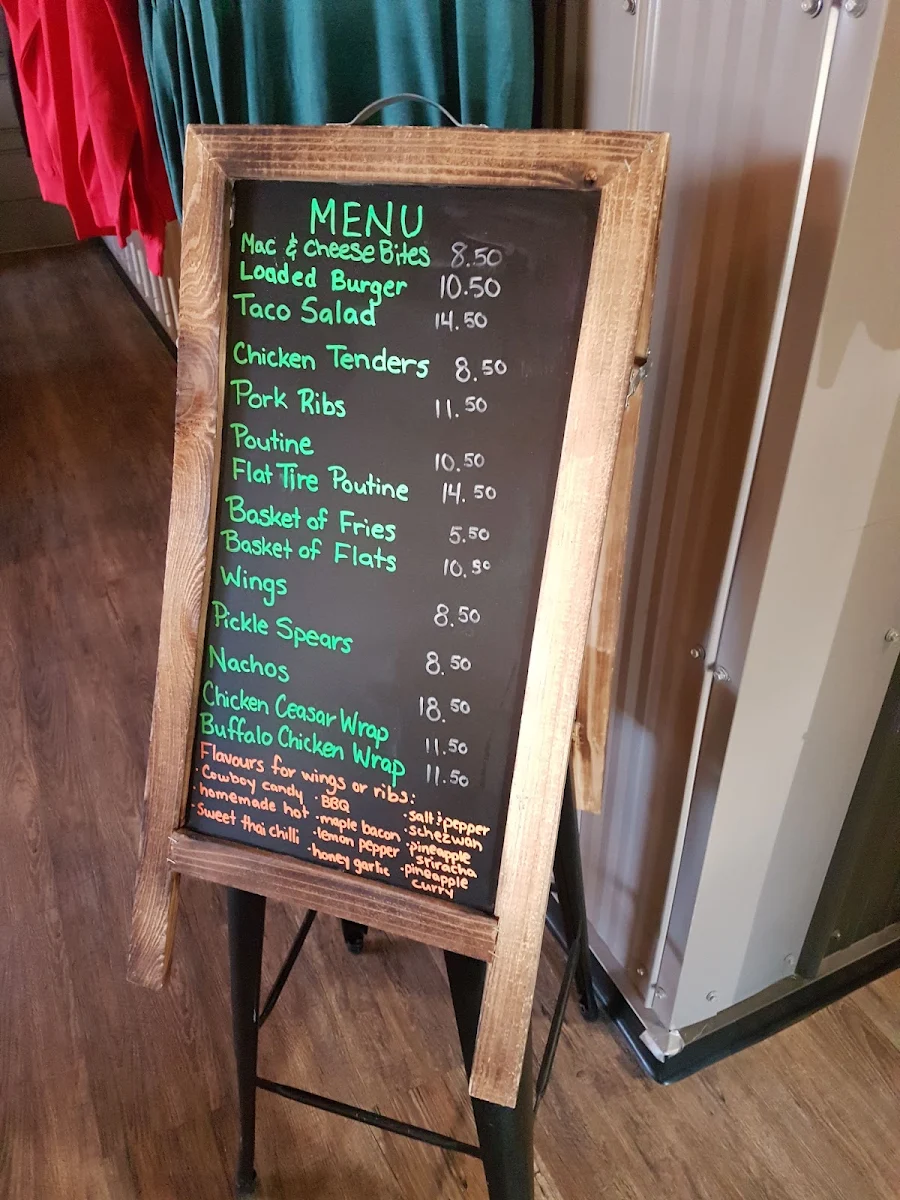 MENU
Mac & Cheese Bites 8.50
Loaded Burger 10.50
Taco Salad 14.50
Chicken Tenders 8.50
Pork Ribs 11.50
Poutine 10.50
Flat Tire Poutine 14.50
Basket of Fries 5.50
Basket of Flats 10.50
Wings 8.50
Pickle Spears 8.50
Nachos 18.50
Chicken Ceasar Wrap 11.50
Buffalo Chicken Wrap 11.50
Flavours for wings or ribs:
· Cowboy candy
· homemade hot
· Sweet thai chilli
· BBQ
· maple bacon
· lemon pepper
· honey garlic
· salt & pepper
· schezwan
· pineapple
sriracha
· pineapple
curry